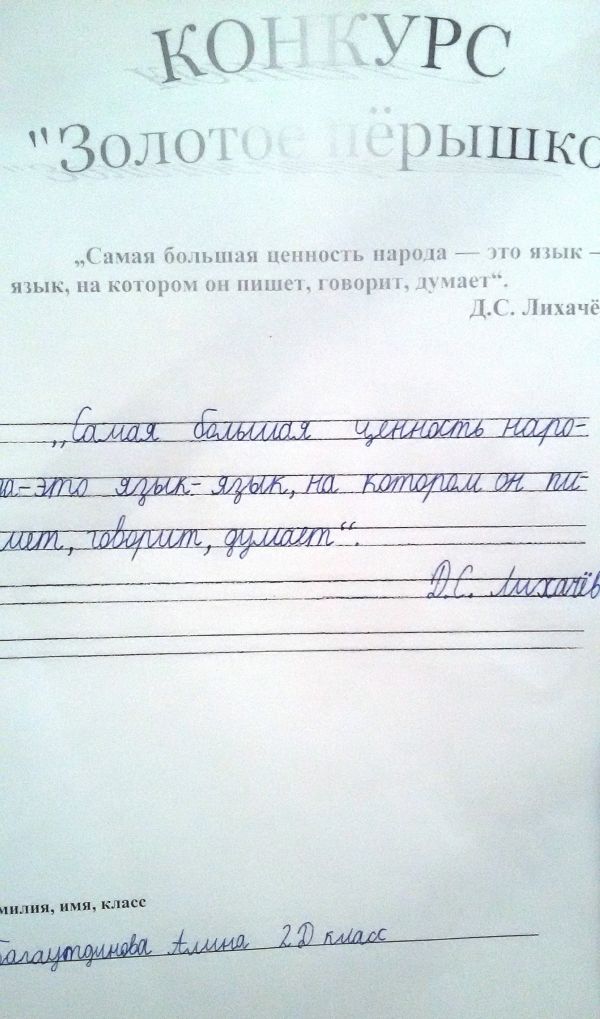 КОНКУРС
"Золотое пёрышко
„Самая большая ценность народа — это язык –
язык, на котором он пишет, говорит, думает“.
Д.С. Лихачё
„Самая большая ценность наро-
да-это язык-язык, на котором он пи-
шет, говорит, думает“.
Д.С. Лихачёв
милия, имя, класс
Балаутдинова Алина 2D класс